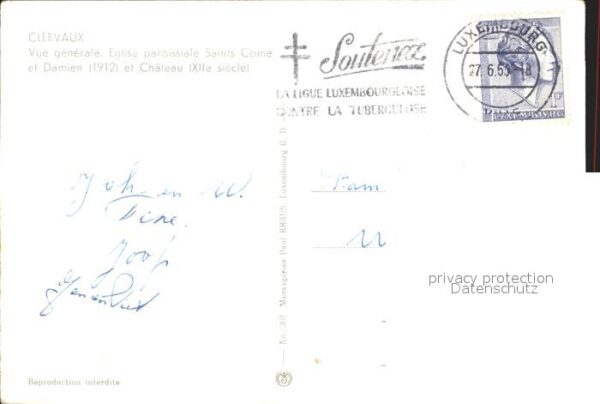 CLERVAUX
Vue générale, Eglise paroissiale Saints Come
et Damien (1912) et Château (XIIe siècle)
Soutenez
LA LIGUE LUXEMBOURGEOISE
CONTRE LA TUBERCULOSE
LUXEMBOURG
27. 6. -18
LUXEMBOURG
Messageries Paul KRAUS, Luxembourg
Joh en W.
Joop
Fam
privacy protection
Datenschutz
Reproduction interdite